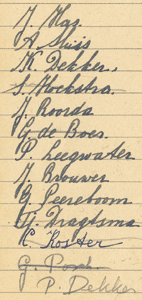 J. Maz.
A. Sluis
K. Dekker.
S. Hoekstra.
J. Roorda
G. de Boer.
P. Leegwater
J. Brouwer
G. Peereboom
Dragtsma
K. Koster
G. Posch
P. Dekker